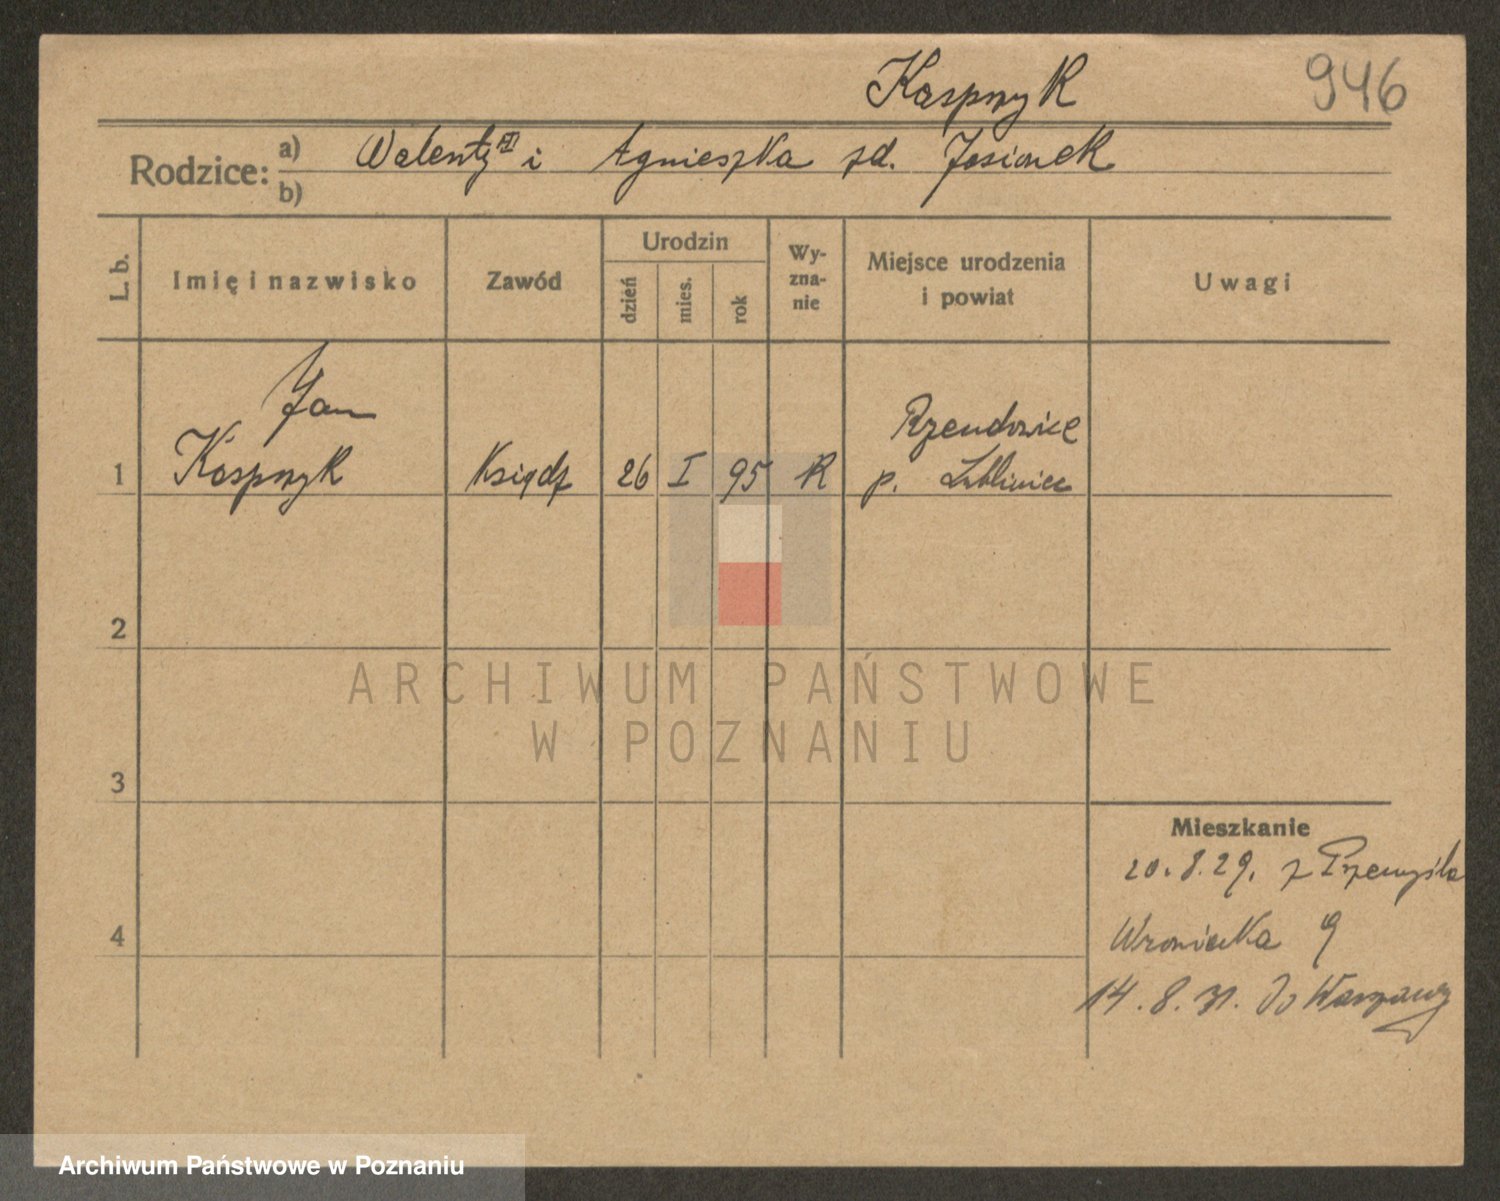 Kaspnyk 946
Rodzice: a) Walenty i Agnieszka zd. Josionek
b)
L. b. Imię i nazwisko Zawód Urodzin dzień mies. rok Wyznanie Miejsce urodzenia i powiat Uwagi
Jan Rzendowice
1 Kaspnyk Ksiądz 26 I 95 R p. Lubliniec
2
ARCHIWUM PAŃSTWOWE
W POZNANIU
3
Mieszkanie
20.8.29. z Przemyśla
4 Wroniecka 9
14.8.31. do Warszawy
Archiwum Państwowe w Poznaniu